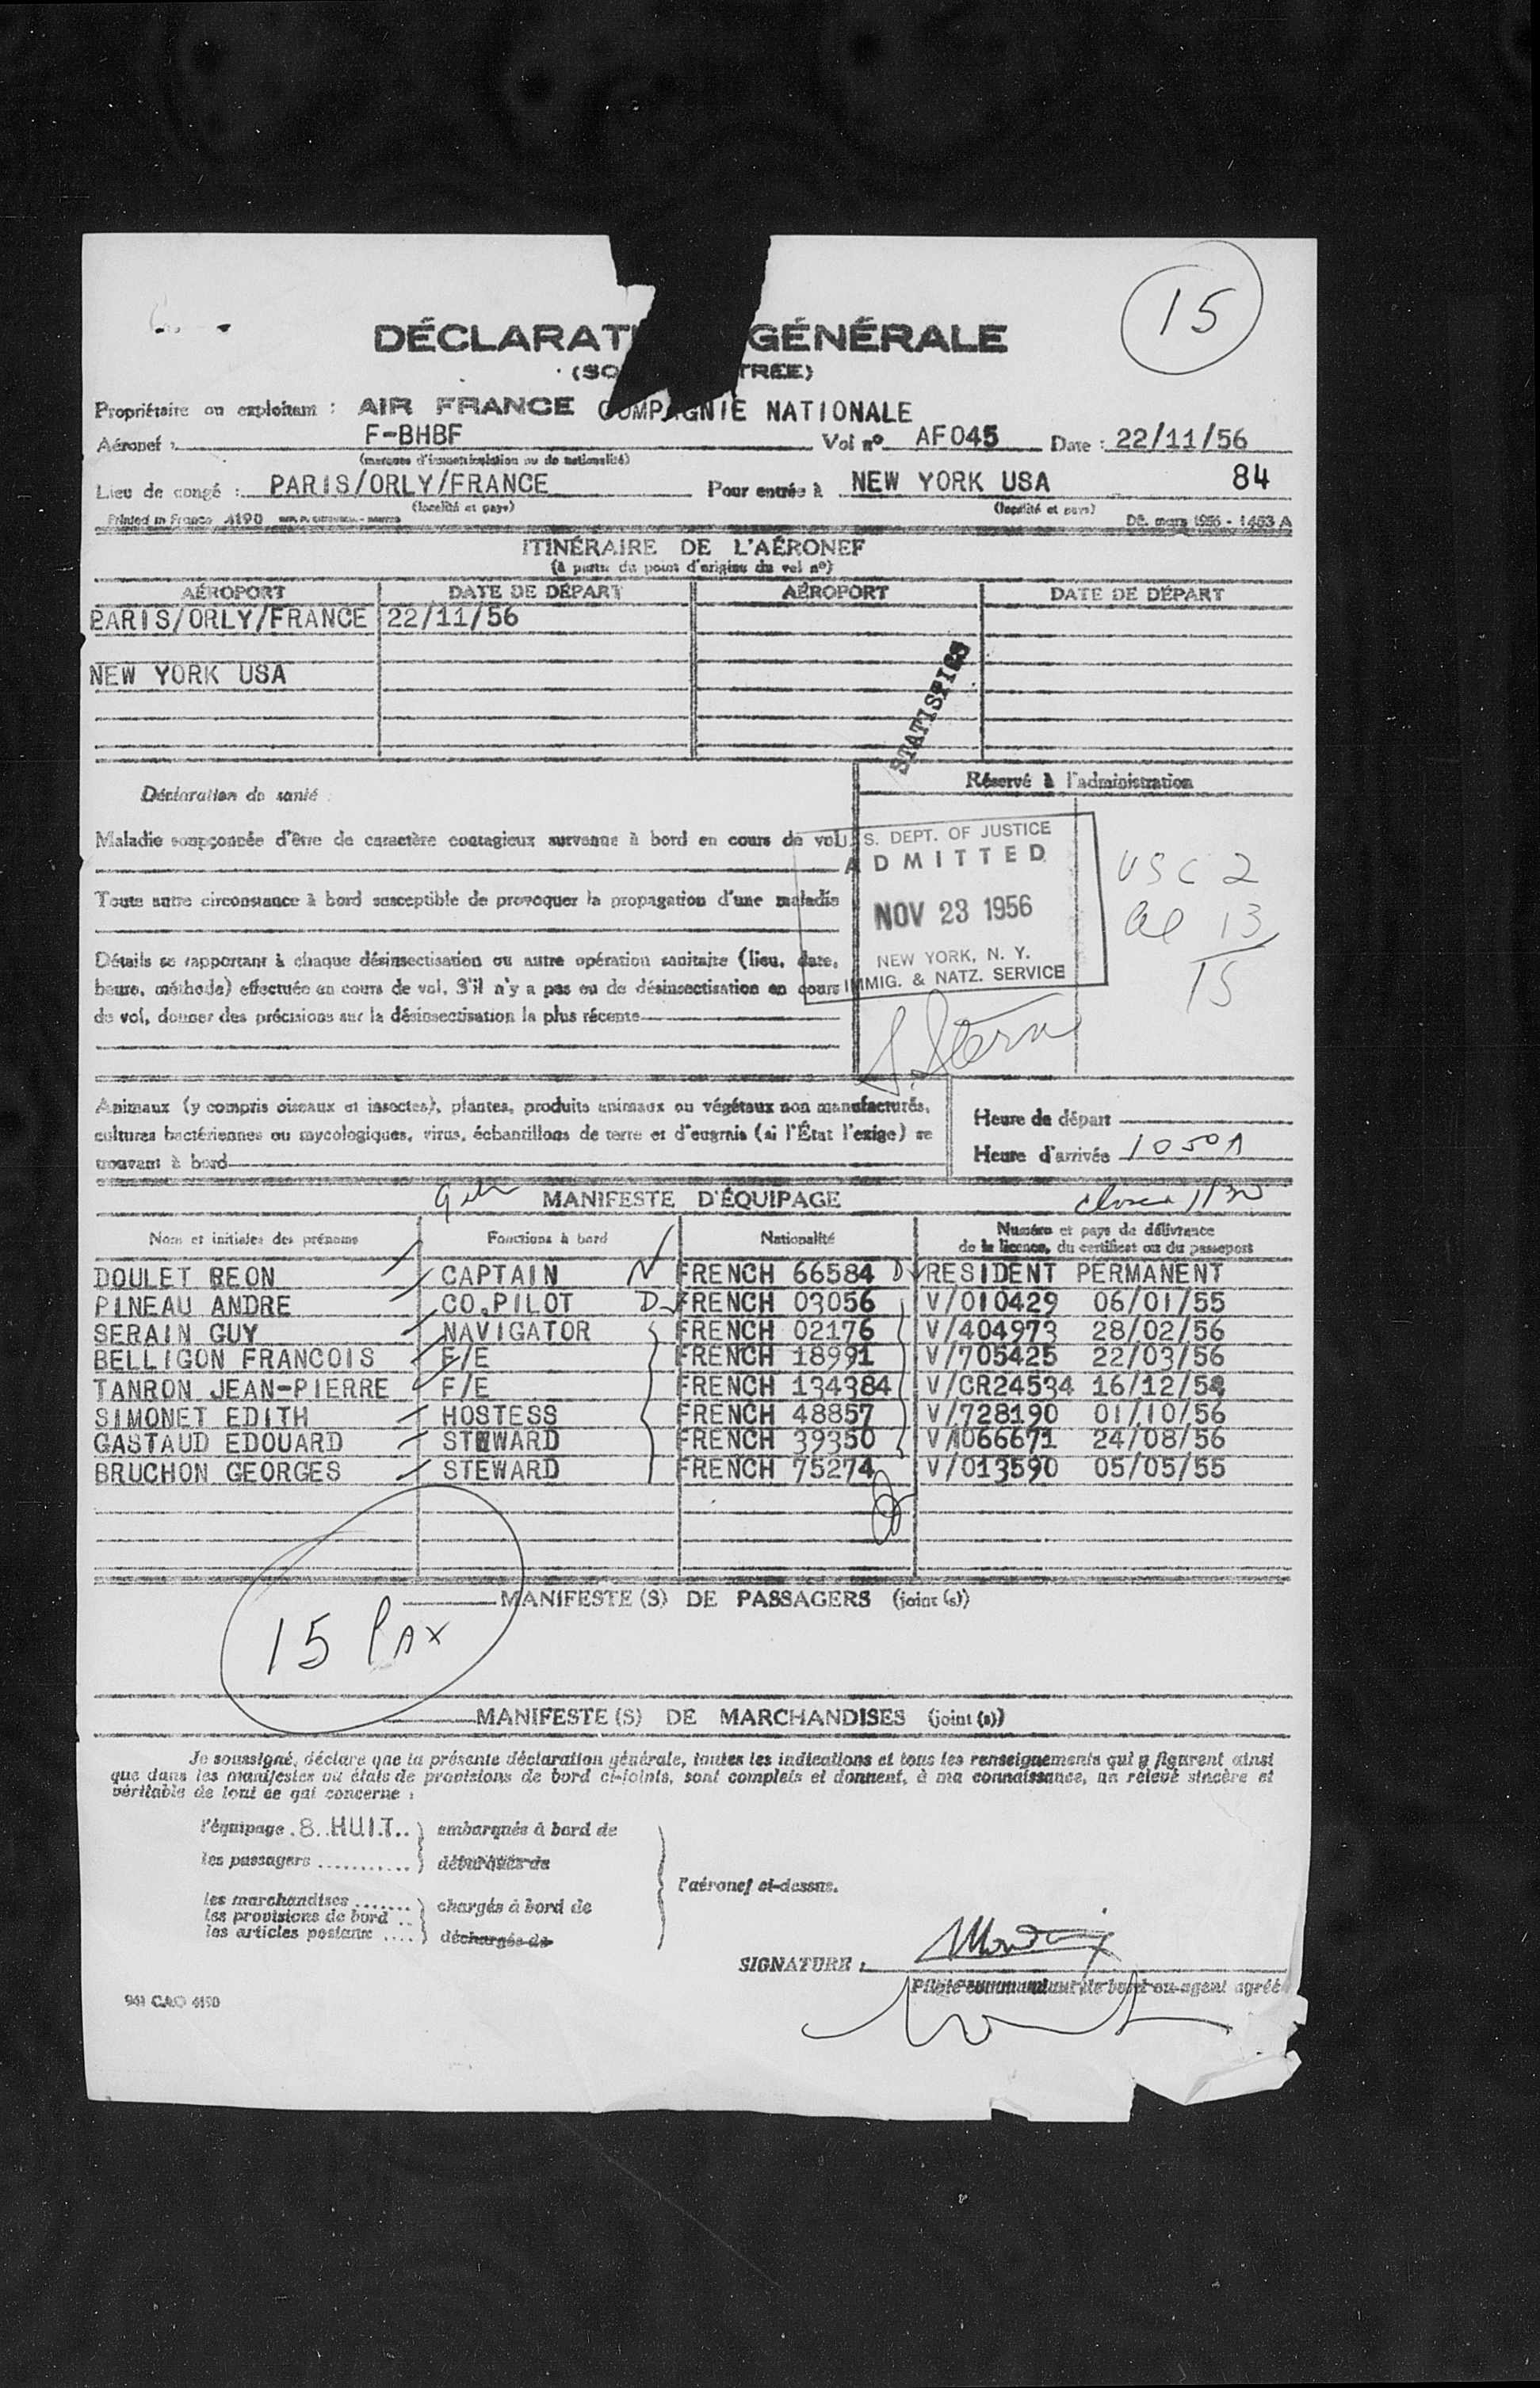 15
DÉCLARATI GÉNÉRALE
(SO TRÉE)
Propriétaire ou exploitant : AIR FRANCE COMPAGNIE NATIONALE
Aéronef : F-BHBF Vol nº AF045 Date : 22/11/56
(marques d'immatriculation ou de nationalité)
Lieu de congé : PARIS/ORLY/FRANCE Pour entrée à NEW YORK USA 84
(localité et pays) (localité et pays)
Printed in France 4190 Dé. mars 1956 - 1463 A
ITINÉRAIRE DE L'AÉRONEF
(à partir du point d'origine du vol nº)
AÉROPORT DATE DE DÉPART AÉROPORT DATE DE DÉPART
PARIS/ORLY/FRANCE 22/11/56
NEW YORK USA
STATISTICS
Réservé à l'administration
Déclaration de santé
Maladie soupçonnée d'être de caractère contagieux survenue à bord en cours de vol
Toute autre circonstance à bord susceptible de provoquer la propagation d'une maladie
Détails se rapportant à chaque désinsectisation ou autre opération sanitaire (lieu, date,
heure, méthode) effectuée en cours de vol. S'il n'y a pas eu de désinsectisation en cours
de vol, donner des précisions sur la désinsectisation la plus récente
U.S. DEPT. OF JUSTICE
ADMITTED
NOV 23 1956
NEW YORK, N. Y.
IMMIG. & NATZ. SERVICE
USC 2
al 13
15
S. Stern
Animaux (y compris oiseaux et insectes), plantes, produits animaux ou végétaux non manufacturés,
cultures bactériennes ou mycologiques, virus, échantillons de terre et d'engrais (si l'État l'exige) se
trouvant à bord
Heure de départ
Heure d'arrivée 1050A
MANIFESTE D'ÉQUIPAGE
Nom et initiales des prénoms Fonctions à bord Nationalité Numéro et pays de délivrance
de la licence, du certificat ou du passeport
DOULET BEON CAPTAIN FRENCH 66584 D RESIDENT PERMANENT
PINEAU ANDRE CO.PILOT D FRENCH 03056 V/010429 06/01/55
SERAIN GUY NAVIGATOR FRENCH 02176 V/404973 28/02/56
BELLIGON FRANCOIS F/E FRENCH 18991 V/705425 22/03/56
TANRON JEAN-PIERRE F/E FRENCH 134384 V/CR24534 16/12/54
SIMONET EDITH HOSTESS FRENCH 48857 V/728190 01/10/56
GASTAUD EDOUARD STEWARD FRENCH 39350 V/1066671 24/08/56
BRUCHON GEORGES STEWARD FRENCH 75274 V/013590 05/05/55
MANIFESTE(S) DE PASSAGERS (joint (s))
15 PAX
MANIFESTE(S) DE MARCHANDISES (joint (s))
Je soussigné, déclare que la présente déclaration générale, toutes les indications et tous les renseignements qui y figurent ainsi
que dans les manifestes ou états de provisions de bord ci-joints, sont complets et donnent, à ma connaissance, un relevé sincère et
véritable de tout ce qui concerne :
l'équipage .8..HUIT.. embarqués à bord de
les passagers ........... débarqués de
l'aéronef ci-dessus.
les marchandises ....... chargés à bord de
les provisions de bord ..
les articles postaux .... déchargés de
SIGNATURE :
Pilote commandant de bord ou agent agréé